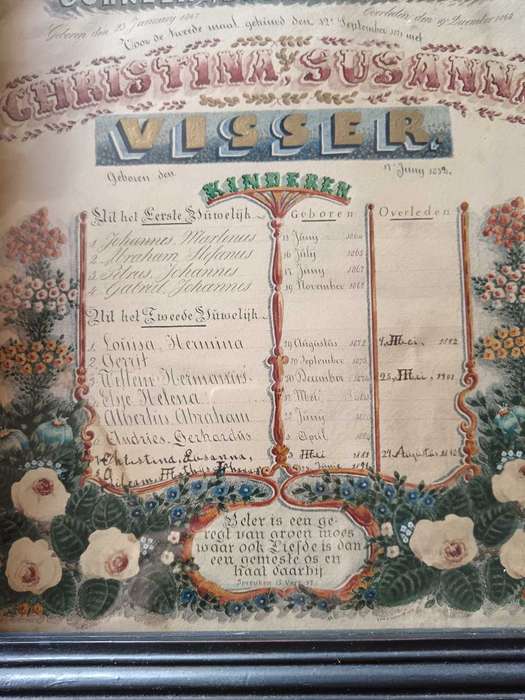 Geboren den 23 January 1847 Overleden den 9 December 1868
Voor de tweede maal gehuwd den 12e September 1871 met
CHRISTINA, SUSANNA
VISSER.
Geboren den Juny 1852.
KINDEREN
Uit het Eerste Huwelijk. Geboren Overleden
1 Johannes Martinus 11 Juny
2 Abraham Stefanus 16 July 1865
3 Klaas Johannes 12 Juny 1867
4 Gabriel Johannes 19 November 1868
Uit het Tweede Huwelijk
1 Louisa, Hermina 29 Augustus 1872 Mei. 1882
2 Gerrit September
3 Willem Hermanus December 25 Mei. 1901
Elsje Helena Mei
Albertus Abraham Juny
Andries. Gerhardus April
Christina Susanna, Mei 1889 24 Augustus
Gideon Mathys Johannes Juny
Beter is een ge-
regt van groen moes
waar ook Liefde is dan
een gemeste os en
haat daarbij
Spreuken 15 Vers 17.